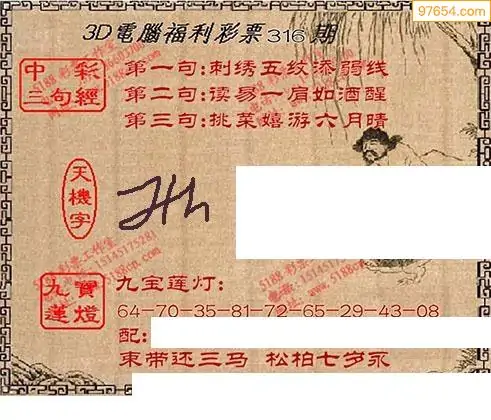 97654.com
3D電腦福利彩票316期
中彩三句經
第一句:刺绣五纹添弱线
第二句:读易一肩如酒醒
第三句:挑菜嬉游六月晴
天機字
九寶蓮燈
九宝莲灯:
64-70-35-81-72-65-29-43-08
配:
束带还三马 松柏七岁永